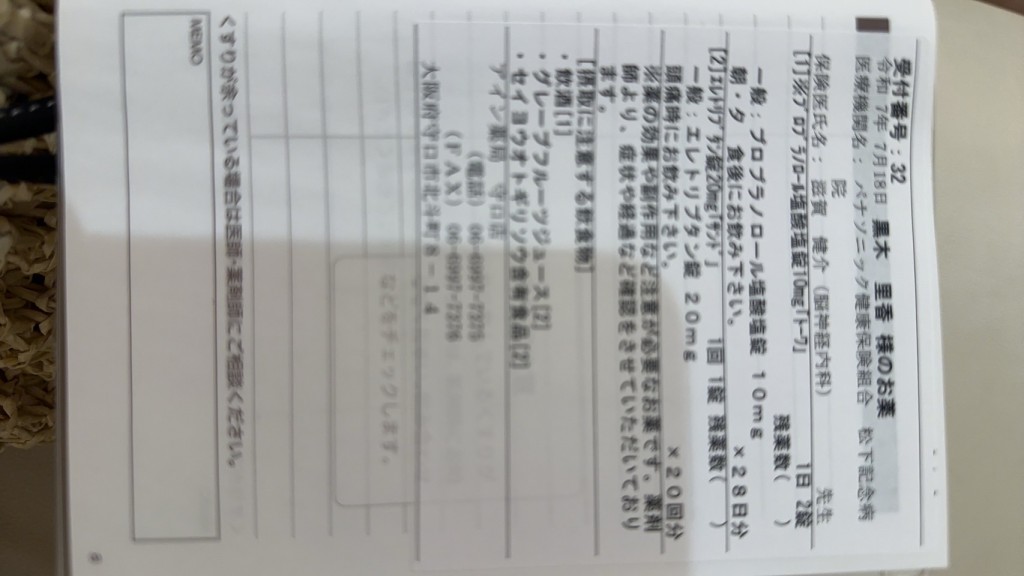 受付番号:32
令和 7年 7月18日 黒木 里香 様のお薬
医療機関名: パナソニック健康保険組合 松下記念病
院
保険医氏名: 滋賀 健介(脳神経内科) 先生
[1]※プロプラノロール塩酸塩錠10mg「トーワ」 1日 2錠
残薬数( )
一般:プロプラノロール塩酸塩錠 10mg
朝・夕 食後にお飲み下さい。 ×28日分
[2]エレトリプタン錠20mg「サンド」 1回 1錠 残薬数( )
一般:エレトリプタン錠 20mg
頭痛時にお飲み下さい。 ×20回分
※薬の効果や副作用など注意が必要なお薬です。薬剤
師より、症状や経過など確認をさせていただいており
ます。
[摂取に注意する飲食物]
・飲酒[1]
・グレープフルーツジュース[2]
・セイヨウオトギリソウ含有食品[2]
アイン薬局 守口店
(電話)
(FAX)
大阪府守口市 8-14
などをチェックします。
くすりが余っている場合は医師・薬剤師にご相談ください。
MEMO